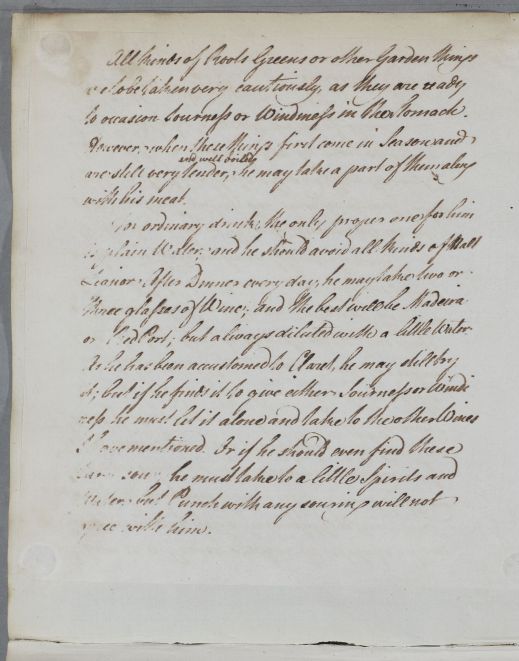 All kinds of Roots Greens or other Garden things
to be taken very cautiously, as they are ready
to occasion Sourness or Windiness in the Stomach.
However, when these things first come in Season and
and well boiled
are still very tender, he may take a part of them along
with his meat.
For ordinary drink, the only proper one for him
is plain Water, and he should avoid all kinds of Malt
Liquor. After Dinner every day, he may take two or
three glasses of Wine; and the best will be Madeira
or Red Port; but always diluted with a little Water.
As he has been accustomed to Claret, he may still try
it; but if he finds it to give either Sourness or Windi
ness he must let it alone and take to the other Wines
I have mentioned. Or if he should even find these
sour he must take to a little Spirits and
Water, but Punch with any souring will not
agree with him.